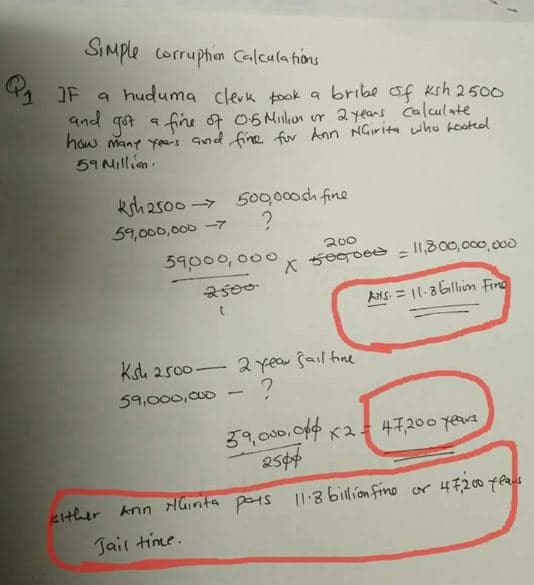 Simple corruption Calculations
Q1 IF a huduma clerk took a bribe of Ksh 2500
and got a fine of 0.5 Million or 2 years Calculate
how many years and fine for Ann NGirita who looted
59 Million.
Ksh 2500 → 500,000sh fine
59,000,000 → ?
200
59,000,000 × 500,000 = 11,800,000,000
2500
1
Ans. = 11.8 billion Fine
Ksh 2500 — 2 year Jail time
59,000,000 — ?
59,000,000 × 2 = 47,200 years
2500
Either Ann NGirita pays 11.8 billion fine or 47,200 years
Jail time.